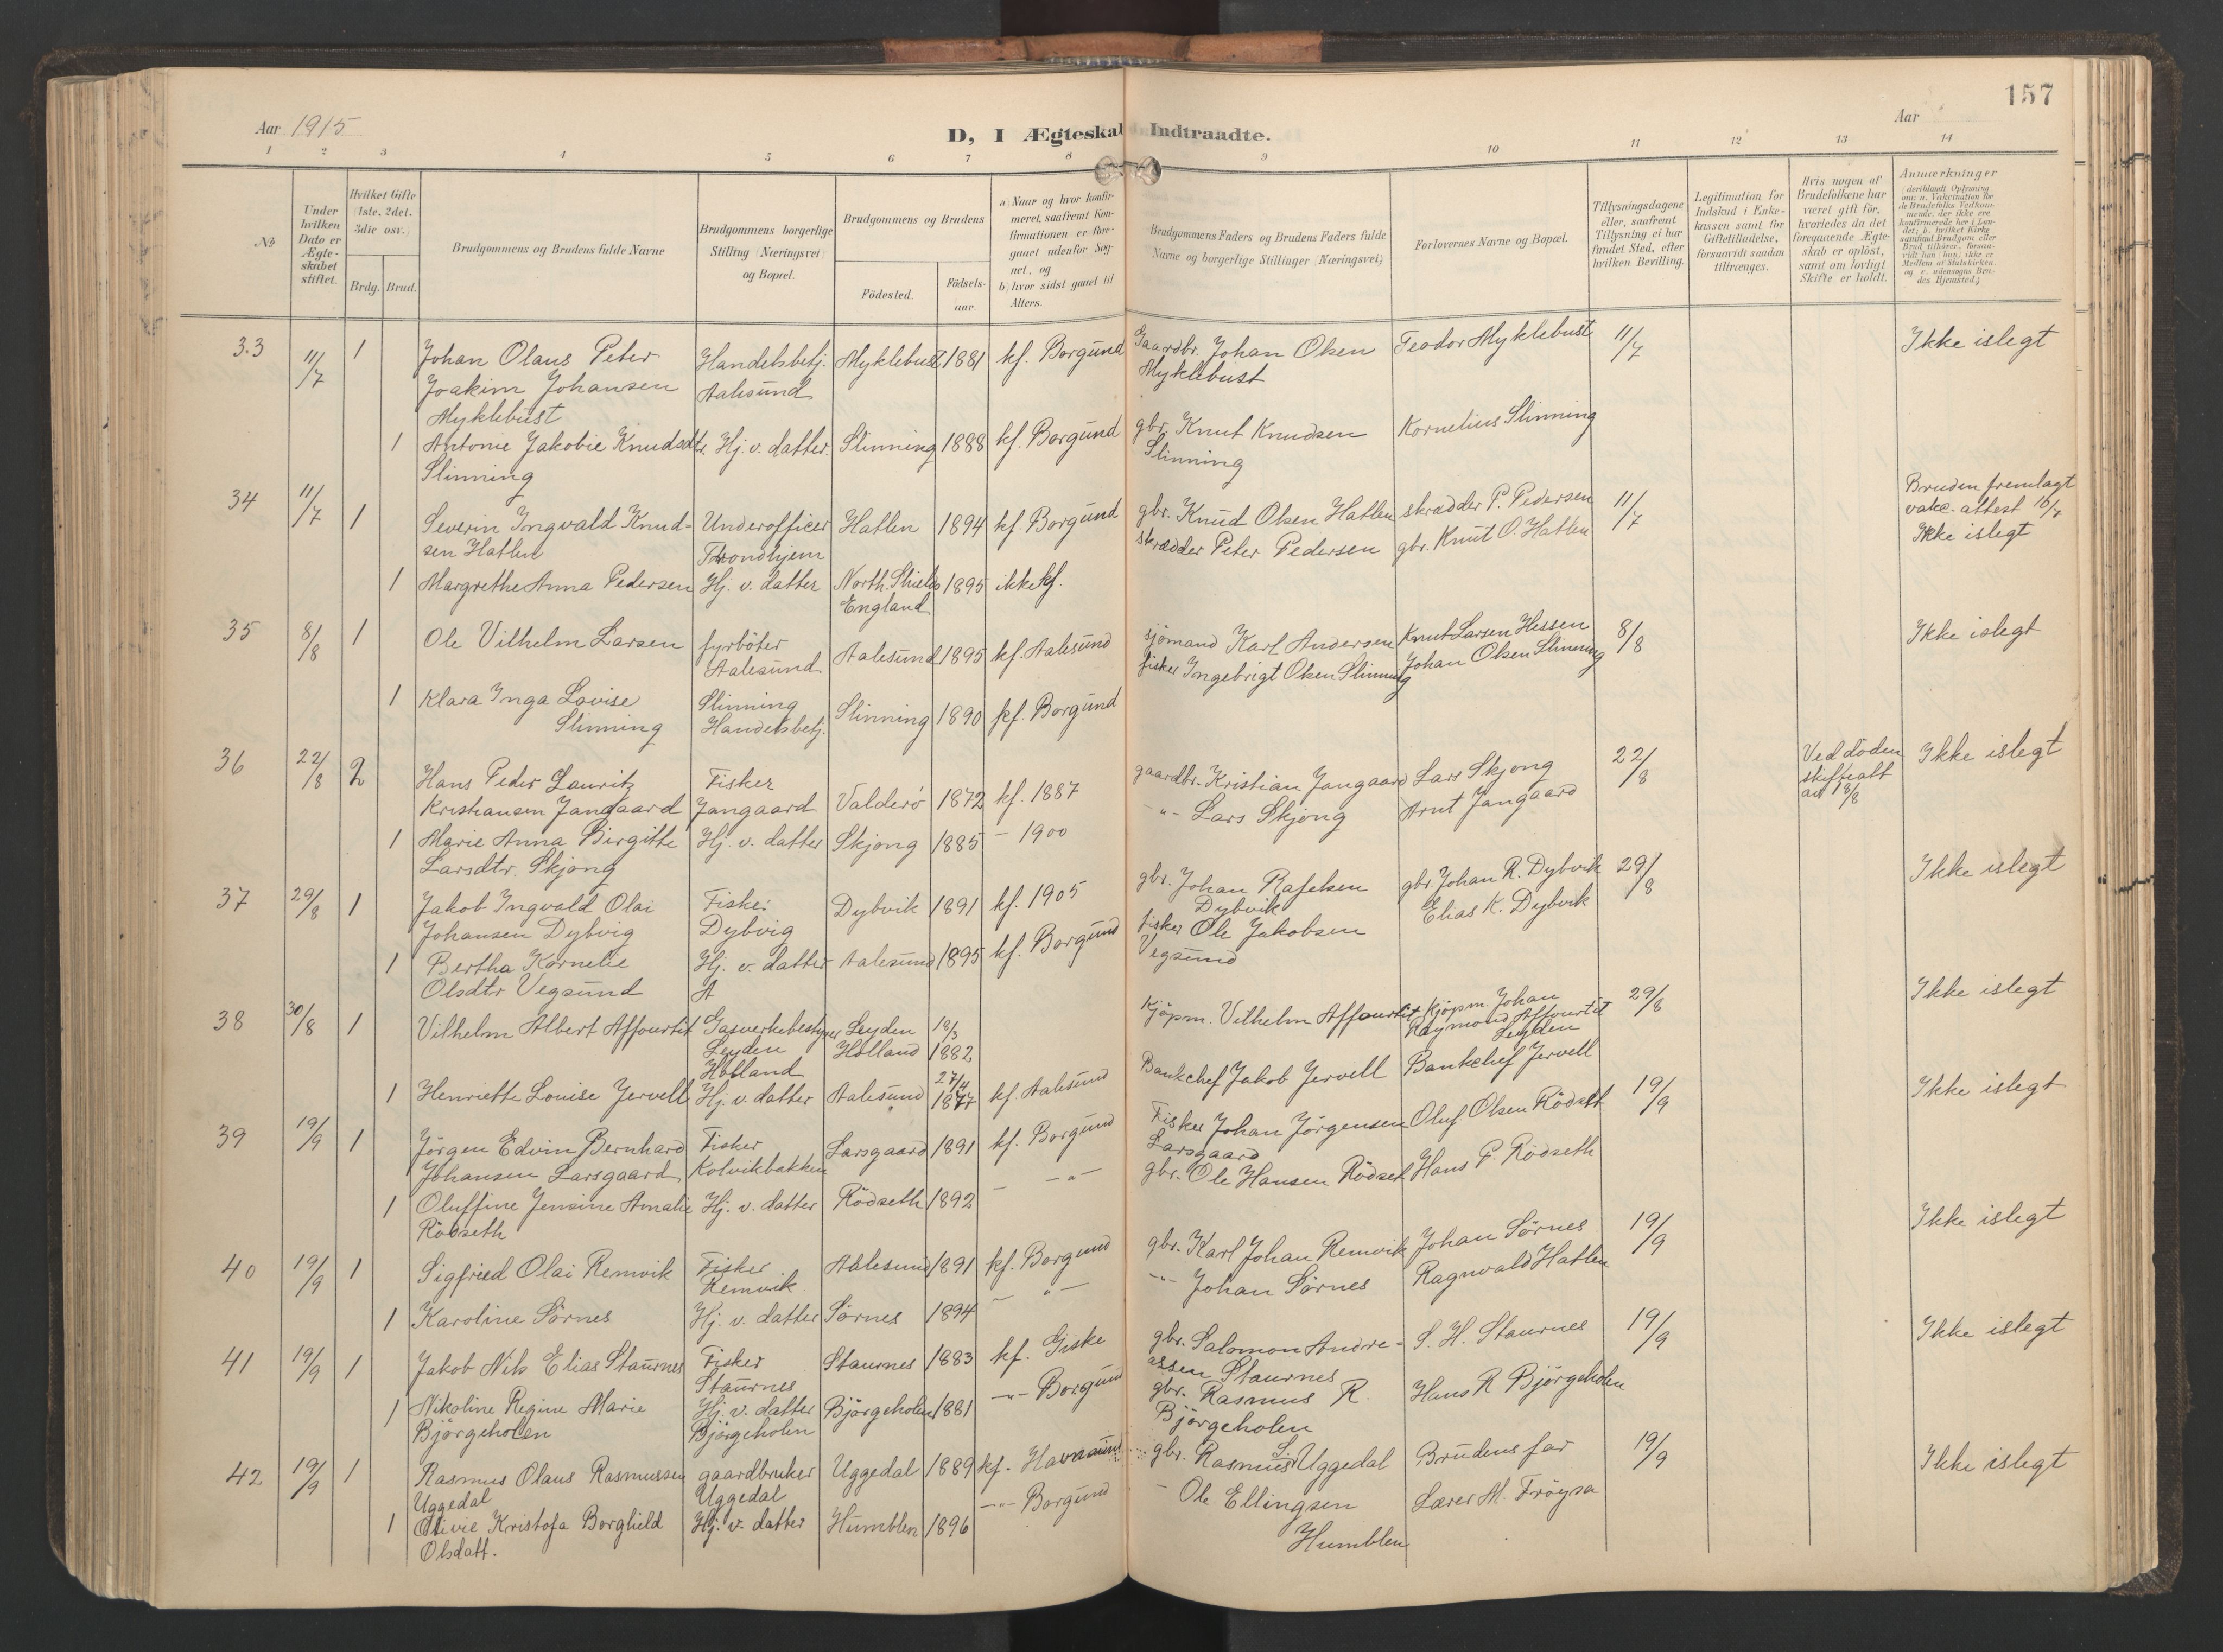 157
Aar 1915
D, I Ægteskab Indtraadte.
Aar
1 2 3 4 5 6 7 8 9 10 11 12 13 14
No
Under hvilken Dato er Ægteskabet stiftet.
Hvilket Gifte (1ste, 2det, 3die osv.)
Brdg. Brud.
Brudgommens og Brudens fulde Navne
Brudgommens borgerlige Stilling (Næringsvei) og Bopæl.
Brudgommens og Brudens
Födested.
Födsels-aar.
a) Naar og hvor konfirmeret, saafremt Konfirmationen er foregaaet udenfor Sognet, og
b) hvor sidst gaaet til Alters.
Brudgommens Faders og Brudens Faders fulde Navne og borgerlige Stillinger (Næringsvei)
Forlovernes Navne og Bopæl.
Tillysningsdagene eller, saafremt Tillysning ei har fundet Sted, efter hvilken Bevilling.
Legitimation for Indskud i Enkekassen samt for Giftetilladelse, forsaavidt saadan tiltrænges.
Hvis nogen af Brudefolkene har været gift för, hvorledes da det foregaaende Ægteskab er oplöst, samt om lovligt Skifte er holdt.
Anmærkninger
33 11/7 1 Johan Olaus Peter Handelsbetj. Myklebust 1881 kf. Borgund Gaardbr. Johan Olsen Teodor Myklebust 11/7 Ikke islegt
Joakim Johansen Aalesund Myklebust
Myklebust
1 Antonie Jakobie Knudsdtr. Hj. v. datter. Slinning 1888 kf. Borgund gbr. Knut Knudsen Kornelius Slinning
Slinning Slinning
34 11/7 1 Severin Ingvald Knud- Underofficer Hatlen 1894 kf. Borgund gbr. Knud Olsen Hatlen skrædder P. Pedersen 11/7 Bruden fremlagt
vakc. attest 10/7
sen Hatlen Trondhjem skrædder Peter Pedersen gbr. Knut O. Hatlen Ikke islegt
1 Margrethe Anna Pedersen Hj. v. datter North. Shields 1895 ikke kf.
England
35 8/8 1 Ole Vilhelm Larsen fyrböter Aalesund 1895 kf. Aalesund sjömand Karl Andersen Knut Larsen Hessen 8/8 Ikke islegt
Aalesund fisker Ingebrigt Olsen Slinning Johan Olsen Slinning
1 Klara Inga Lovise Slinning Slinning 1890 kf. Borgund
Slinning Handelsbetj.
36 22/8 2 Hans Peder Lauritz Fisker Valderö 1872 kf. 1887 gaardbr. Kristian Jangaard Lars Skjong 22/8 Ved döden Ikke islegt
skifteatt
av 18/8
Kristiansen Jangaard Jangaard -"- Lars Skjong Arnt Jangaard
1 Marie Anna Birgitte Hj. v. datter Skjong 1885 - 1900
Larsdtr. Skjong
37 29/8 1 Jakob Ingvald Olai Fisker Dybvik 1891 kf. 1905 gbr. Johan Rafelsen gbr. Johan R. Dybvik 29/8 Ikke islegt
Johansen Dybvig Dybvig Dybvik Elias K. Dybvik
1 Bertha Kornelie Hj. v. datter Aalesund 1895 kf. Borgund fisker Ole Jakobsen
Olsdtr Vegsund A Vegsund
38 30/8 1 Vilhelm Albert Affourtit Gasverkebestyrer Leyden 18/3 Kjöpm. Vilhelm Affourtit Kjöpm. Johan 29/8 Ikke islegt
Leyden Holland 1882 Raymond Affourtit
Holland Leyden
1 Henriette Louise Jervell Hj. v. datter Aalesund 27/4 1877 kf. Aalesund Bankchef Jakob Jervell Bankchef Jervell
39 19/9 1 Jörgen Edvin Bernhard Fisker Larsgaard 1891 kf. Borgund Fisker Johan Jörgensen Oluf Olsen Rödset 19/9 Ikke islegt
Johansen Larsgaard Kolvikbakken Larsgaard
1 Oluffine Jensine Amalie Hj. v. datter Rödseth 1892 - -"- gbr. Ole Hansen Rödset Hans P. Rödseth
Rödseth
40 19/9 1 Sigfried Olai Remvik Fisker Aalesund 1891 kf. Borgund gbr. Karl Johan Remvik Johan Sörnes 19/9 Ikke islegt
Remvik
1 Karoline Sörnes Hj. v. datter Sörnes 1894 - "- -"- Johan Sörnes Ragnvald Hatlen
41 19/9 1 Jakob Nik Elias Staurnes Fisker Staurnes 1883 kf. Giske gbr. Salomon Andre- S. H. Staurnes 19/9 Ikke islegt
Staurnes assen Staurnes
1 Nikoline Regine Marie Hj. v. datter Björgeholen 1881 -"- Borgund gbr. Rasmus R. Hans R Björgeholen
Björgeholen Björgeholen Björgeholen
42 19/9 1 Rasmus Olaus Rasmussen gaardbruker Uggedal 1889 kf. gbr. Rasmus L. Uggedal Brudens far 19/9 Ikke islegt
Uggedal Uggedal
1 Olivie Kristofa Borghild Hj. v. datter Humblen 1896 -"- Borgund - Ole Ellingsen Lærer M. Fröysa
Olsdatt. Humblen